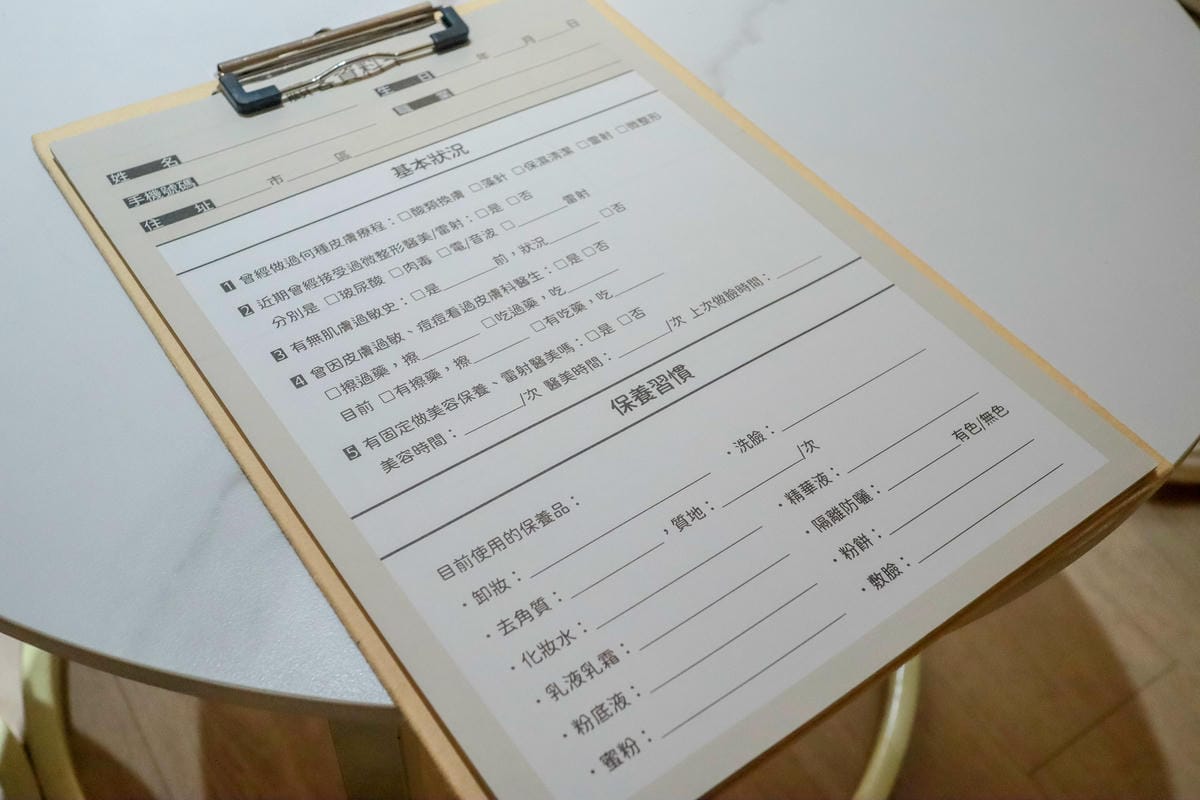 生 日 年 月 日
姓 名 職 業
手機號碼
住 址 市 區
基本狀況
1 曾經做過何種皮膚療程：□酸類換膚 □藻針 □保濕清潔 □雷射 □微整形
2 近期曾經接受過微整形醫美/雷射：□是 □否
分別是 □玻尿酸 □肉毒 □電/音波 □ 雷射
3 有無肌膚過敏史：□是 前，狀況 □否
4 曾因皮膚過敏、痘痘看過皮膚科醫生：□是 □否
□擦過藥，擦 □吃過藥，吃
目前 □有擦藥，擦 □有吃藥，吃
5 有固定做美容保養、雷射醫美嗎：□是 □否
美容時間： /次 醫美時間： /次 上次做臉時間：
保養習慣
目前使用的保養品：
・卸妝： ・洗臉：
・去角質： ，質地： /次
・化妝水： ・精華液：
・乳液乳霜： ・隔離防曬： 有色/無色
・粉底液： ・粉餅：
・蜜粉： ・敷臉：